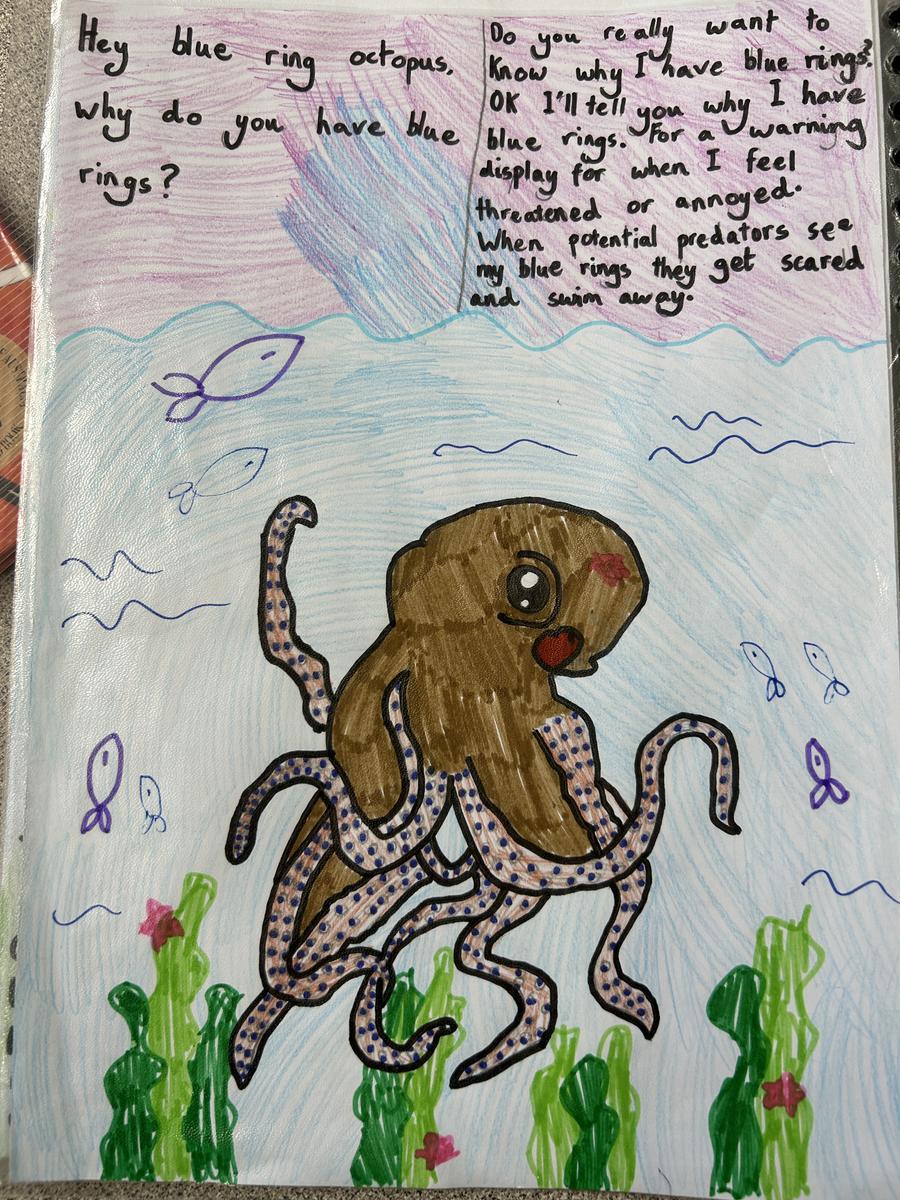 Hey blue ring octopus,
why do you have blue
rings?
Do you really want to
Know why I have blue rings?
OK I'll tell you why I have
blue rings. For a warning
display for when I feel
threatened or annoyed.
When potential predators see
my blue rings they get scared
and swim away.